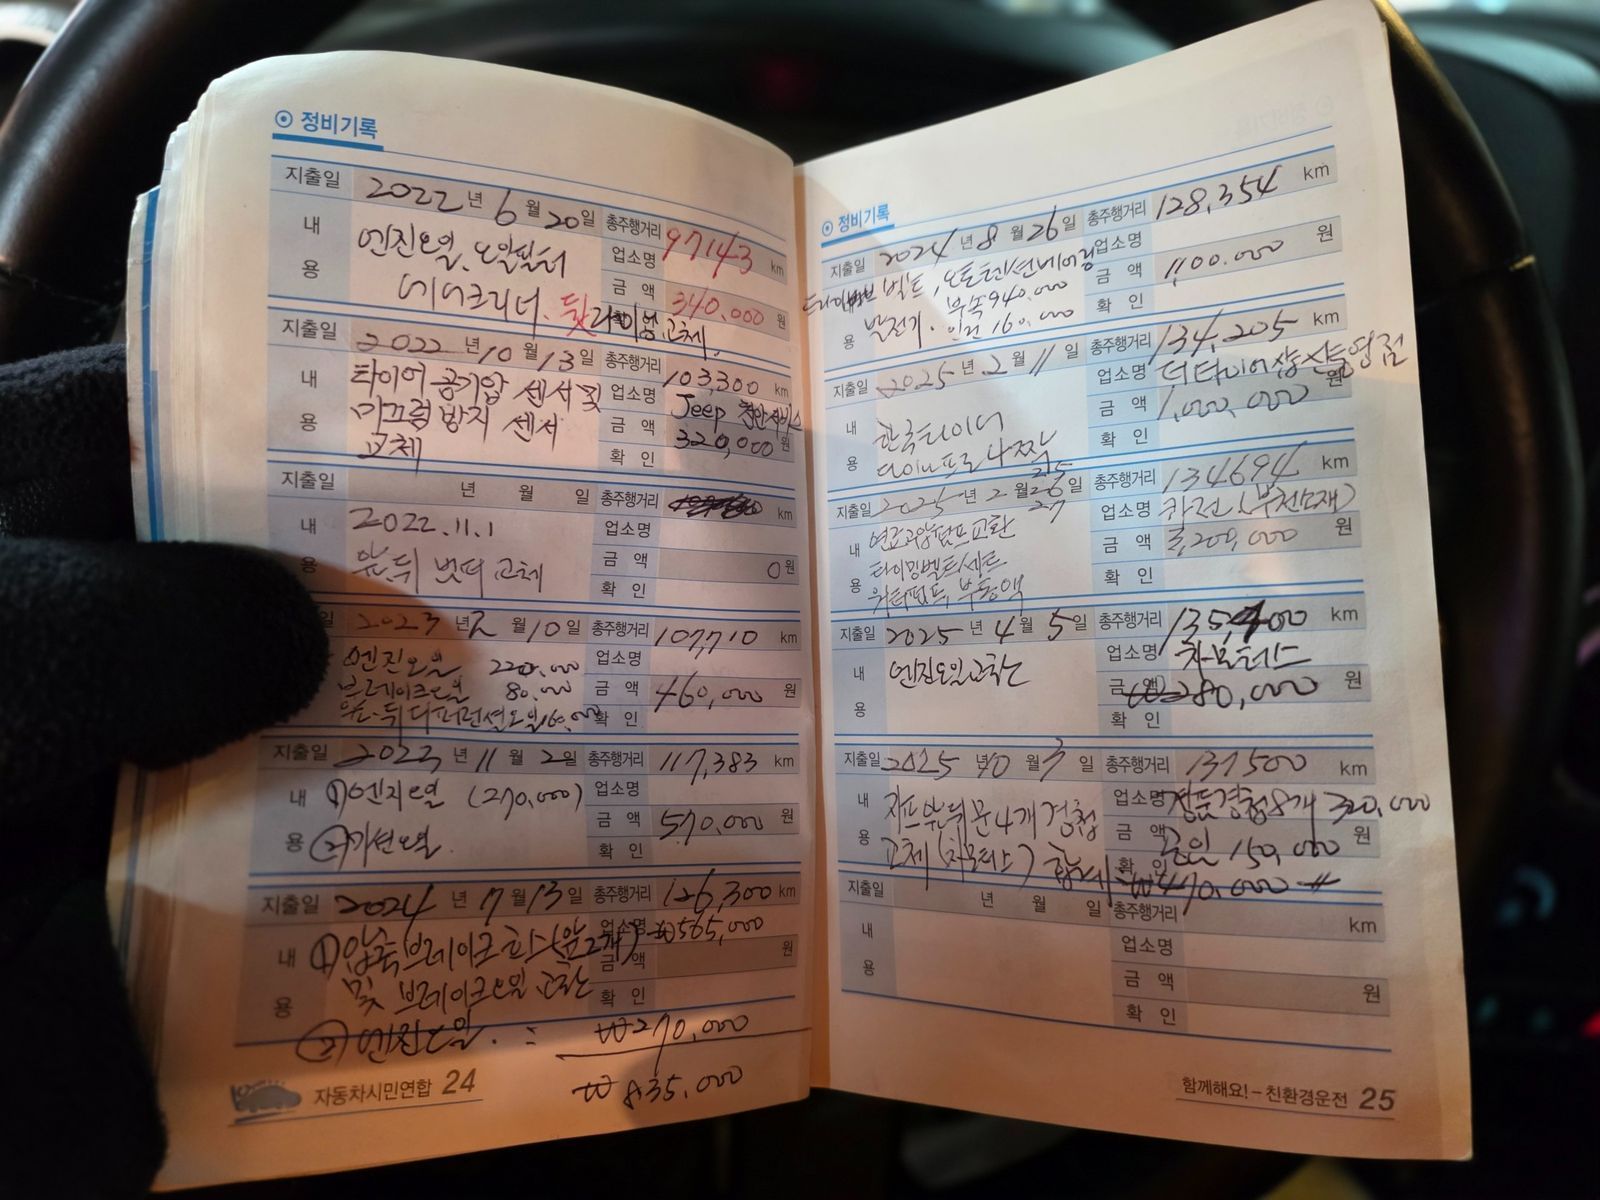 정비기록
지출일 2022 년 6 월 20 일 총주행거리 97143 km
내용 엔진오일, 오일필터
에어크리너, 뒷라이닝 교체,
업소명
금 액 340,000 원
확 인
지출일 2022 년 10 월 13 일 총주행거리 103,300 km
내용 타이어 공기압 센서 및
미끄럼방지 센서
교체
업소명 Jeep 천안서비스
금 액 320,000 원
확 인
지출일 년 월 일 총주행거리 km
내용 2022.11.1
앞,뒤 밧데 교체
업소명
금 액 0 원
확 인
2023 년 2 월 10 일 총주행거리 107,710 km
엔진오일 220,000
브레이크오일 80,000
앞,뒤 디퍼런셜오일 160,000
업소명
금 액 460,000 원
확 인
지출일 2023 년 11 월 2 일 총주행거리 117,383 km
내용 ① 엔진오일 (270,000)
② 미션오일
업소명
금 액 570,000 원
확 인
지출일 2024 년 7 월 13 일 총주행거리 126,300 km
내용 ① 앞쪽 브레이크 (앞2개) ₩565,000
및 브레이크오일 교환
업소명
금 액 원
확 인
② 엔진오일. : ₩270,000
₩835,000
자동차시민연합 24
정비기록
지출일 2024 년 8 월 26 일 총주행거리 128,354 km
내용 드라이브 벨트, 오토텐션베어링
발전기. 부속 940,000
인건 160,000
업소명
금 액 1,100,000 원
확 인
지출일 2025 년 2 월 11 일 총주행거리 134,205 km
내용 한국타이어
다이나프로 4짝
업소명 더타이어샵 신둔영점
금 액 1,000,000 원
확 인
지출일 2025 년 2 월 25 26 27 일 총주행거리 134694 km
내용 연료고압펌프교환
타이밍벨트세트
워터펌프, 부동액
업소명 카젠 (부천소재)
금 액 200,000 원
확 인
지출일 2025 년 4 월 5 일 총주행거리 km
내용 엔진오일교환
업소명 차모테스
금 액 ₩280,000 원
확 인
지출일 2025 년 10 월 3 일 총주행거리 137500 km
내용 지프 앞뒤 문 4개 경첩
교체 (차모테스) 합계 ₩470,000 #
업소명 정품경첩8개 320,000
금 액 공임 150,000 원
확 인
지출일 년 월 일 총주행거리 km
내용
업소명
금 액 원
확 인
함께해요! - 친환경운전 25